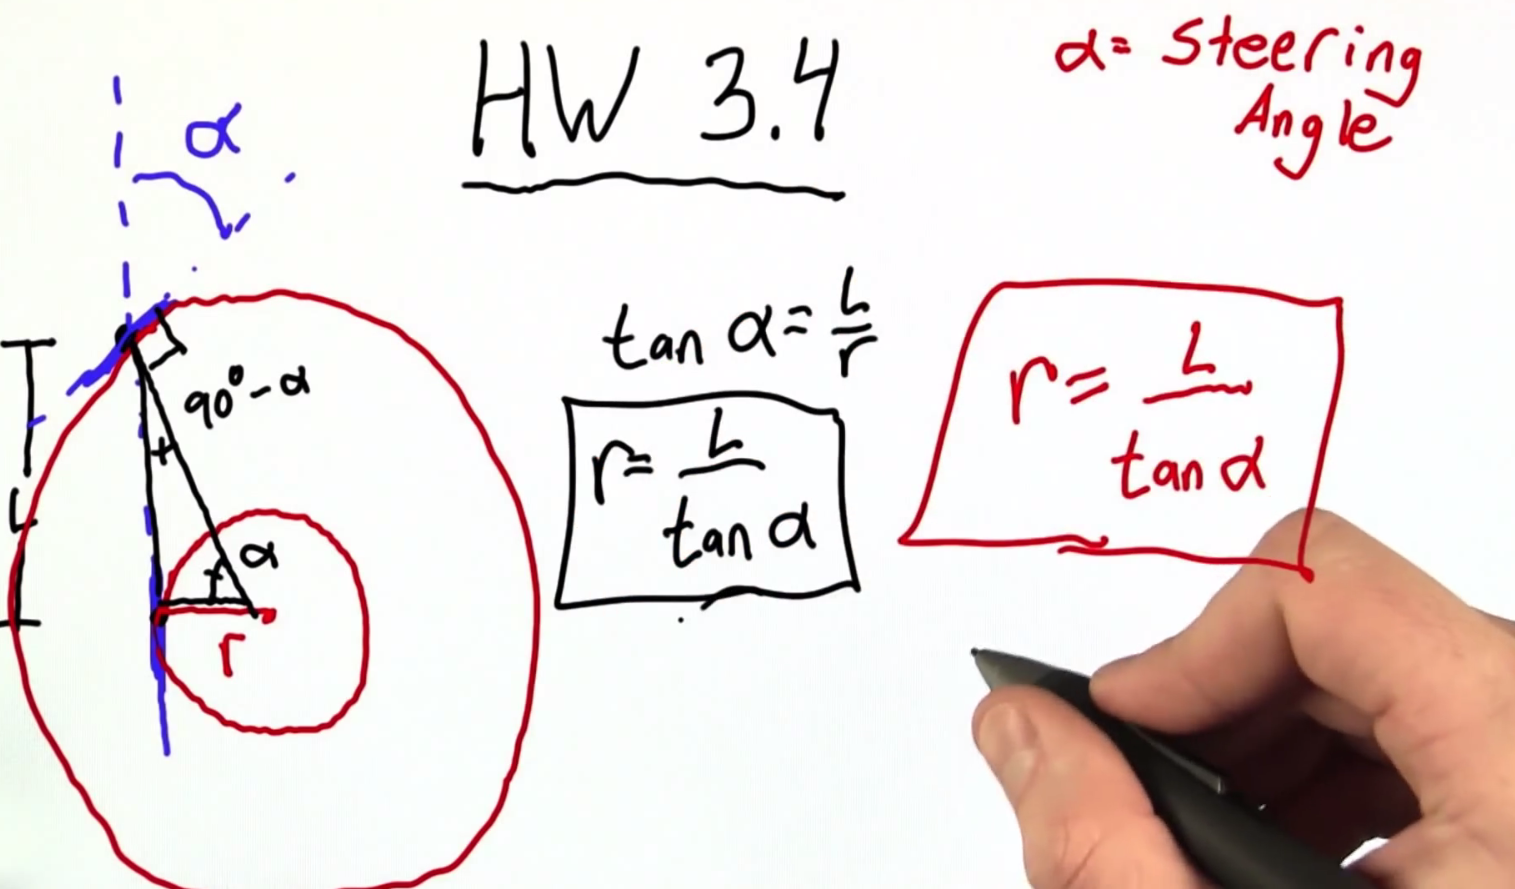 HW 3.4
α = Steering
Angle
α
90° - α
L
α
r
tan α = L/r
r = L/tan α
r = L/tan α